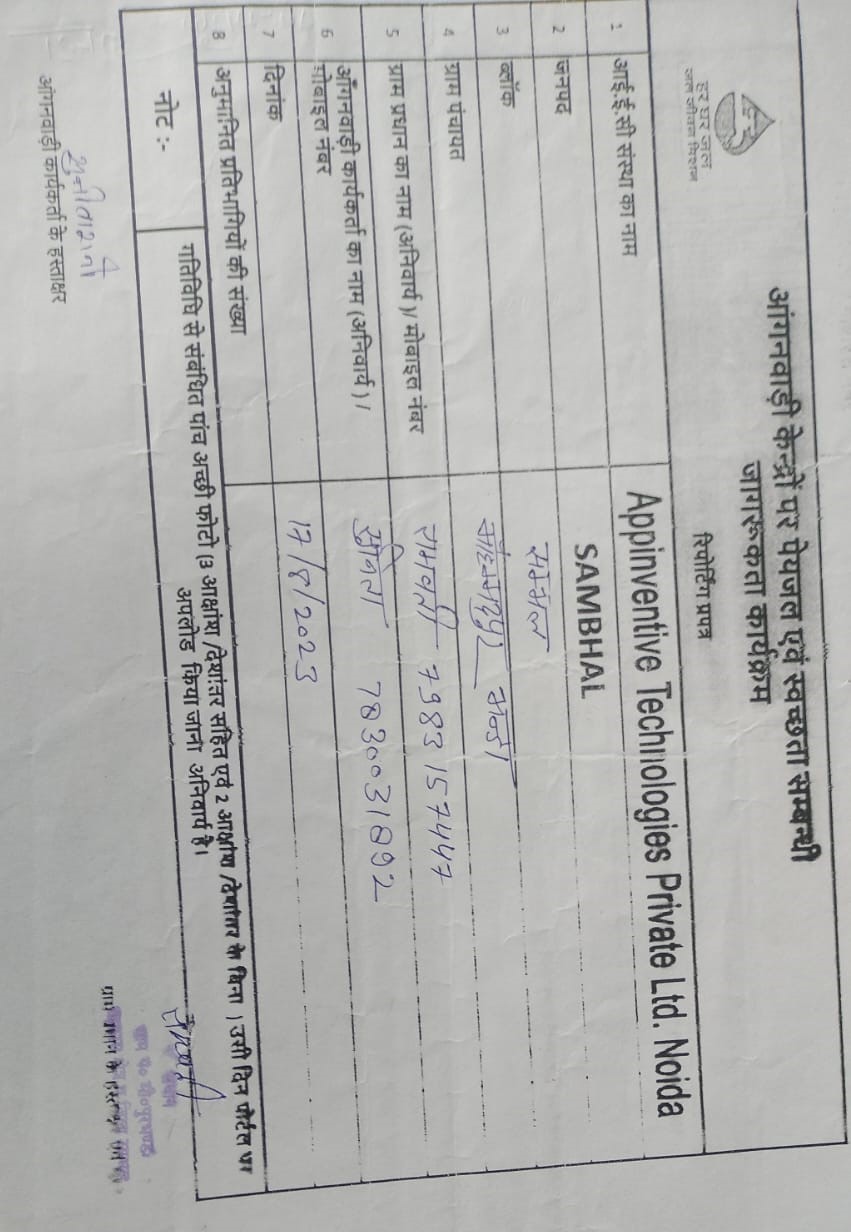 हर घर जल
जल जीवन मिशन
आंगनवाड़ी केन्द्रों पर पेयजल एवं स्वच्छता सम्बन्धी
जागरूकता कार्यक्रम
रिपोर्टिंग प्रपत्र
1 आई.ई.सी संस्था का नाम Appinventive Technologies Private Ltd. Noida
2 जनपद SAMBHAL
3 ब्लॉक सम्भल
4 ग्राम पंचायत
5 ग्राम प्रधान का नाम (अनिवार्य)/ मोबाइल नंबर रामवती 7983157447
6 आँगनवाड़ी कार्यकर्ता का नाम (अनिवार्य) / 7830031892
मोबाइल नंबर
7 दिनांक 17/8/2023
8 अनुमानित प्रतिभागियों की संख्या
नोट :- गतिविधि से संबंधित पांच अच्छी फोटो (3 आक्षांश /देशांतर सहित एवं 2 आक्षांश /देशांतर के बिना ) उसी दिन पोर्टल पर
अपलोड किया जाना अनिवार्य है।
आंगनवाड़ी कार्यकर्ता के हस्ताक्षर